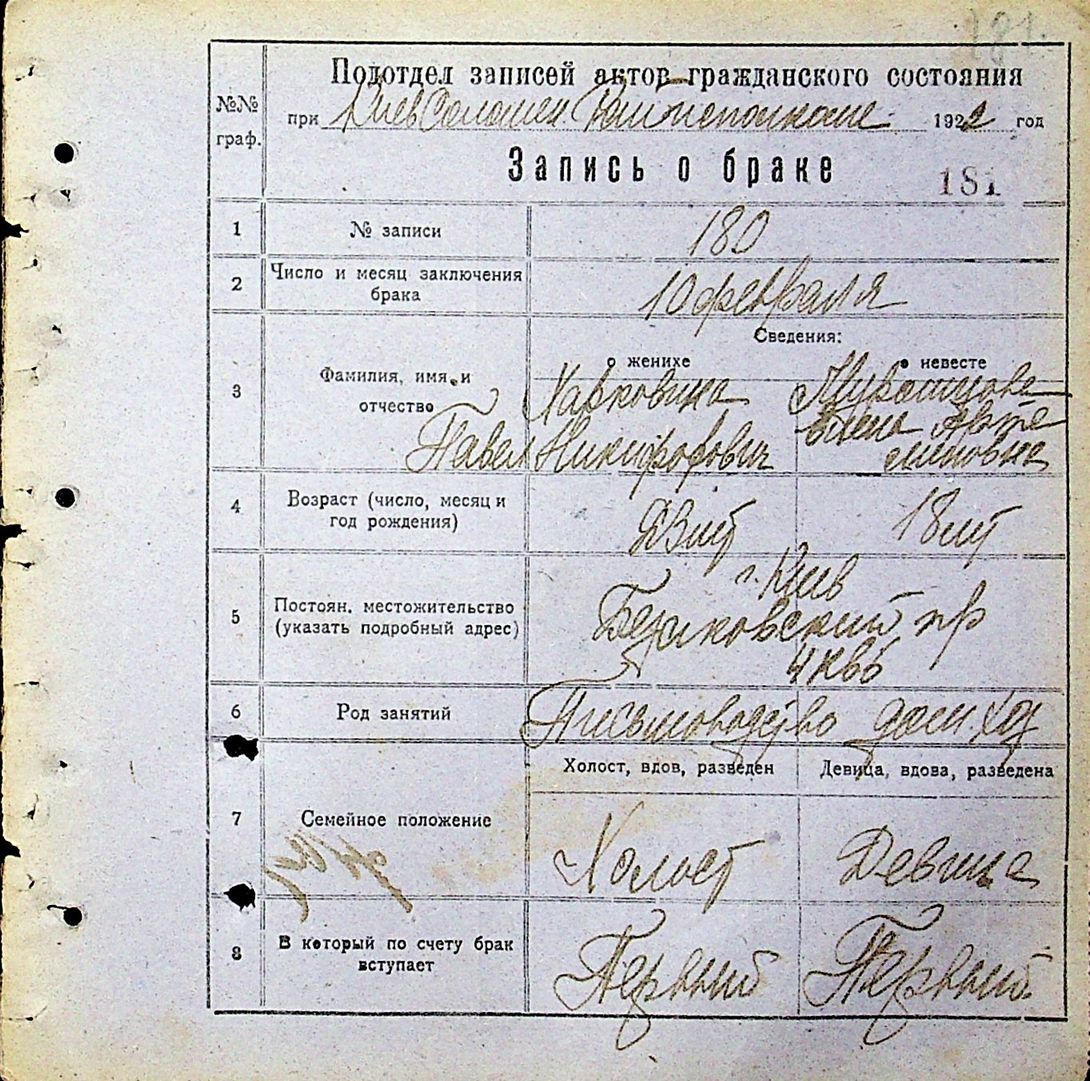 181
Подотдел записей актов гражданского состояния
№№ граф.
при Киев Соломен Райисполкоме 1922 год
Запись о браке
181
1 № записи 180
2 Число и месяц заключения брака 10 февраля
Сведения:
о женихе о невесте
3 Фамилия, имя и отчество
Харковина
Павел Никифорович
Елена Авте
миновна
4 Возраст (число, месяц и год рождения) 18 лет
5 Постоян. местожительство (указать подробный адрес)
г. Киев
пр
4 кв 6
6 Род занятий Письмоводство дом. хоз
Холост, вдов, разведен Девица, вдова, разведена
7 Семейное положение Холост Девица
8 В который по счету брак вступает Первый Первый